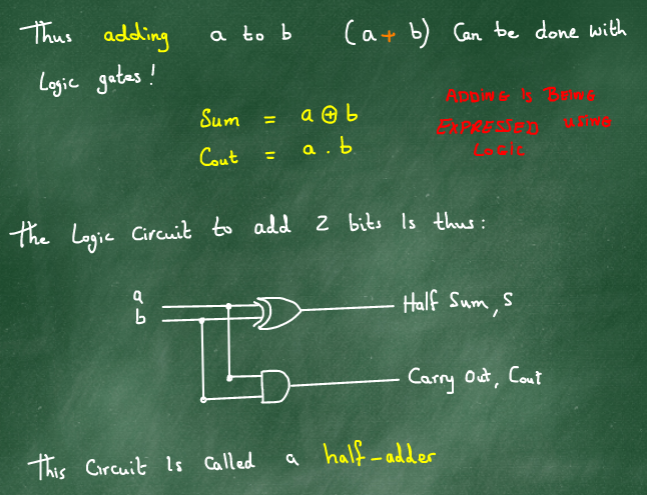 Thus adding a to b (a + b) Can be done with
Logic gates!
Sum = a ⊕ b
Cout = a . b
ADDING IS BEING
EXPRESSED USING
LOGIC
The Logic Circuit to add 2 bits Is thus:
a
b
Half Sum, S
Carry Out, Cout
This Circuit Is Called a half-adder